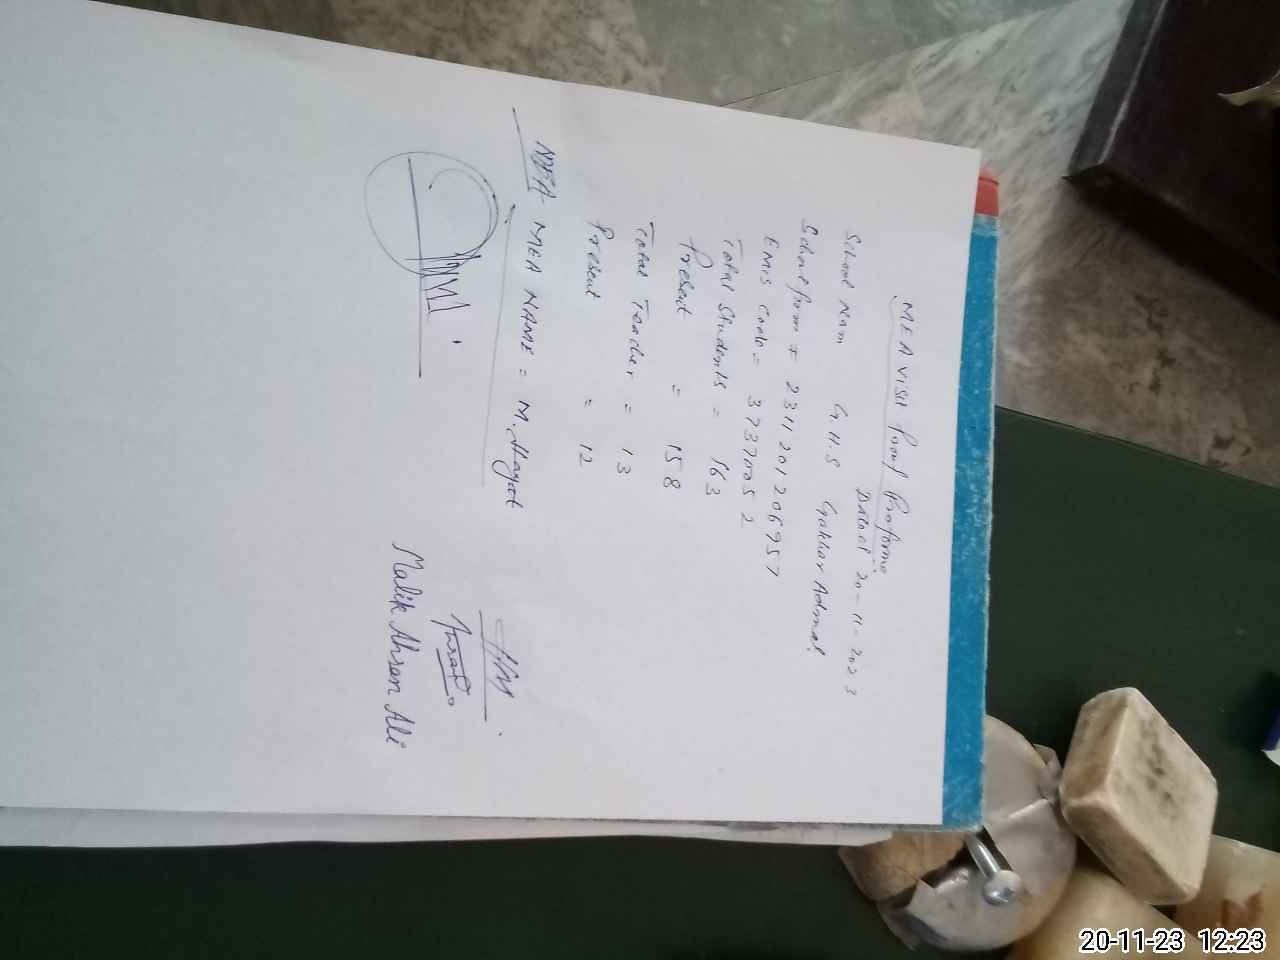 MEA Visit Proof Proforma
Dated 20-11-2023
School Nam G.H.S Gakhar Admal
School form # 2311201206957
EMIS Code = 37370052
Total Students = 163
Present = 158
Total Teacher = 13
Present = 12
MEA NAME = M. Hayat
HM
Malik Ahsan Ali
20-11-23 12:23